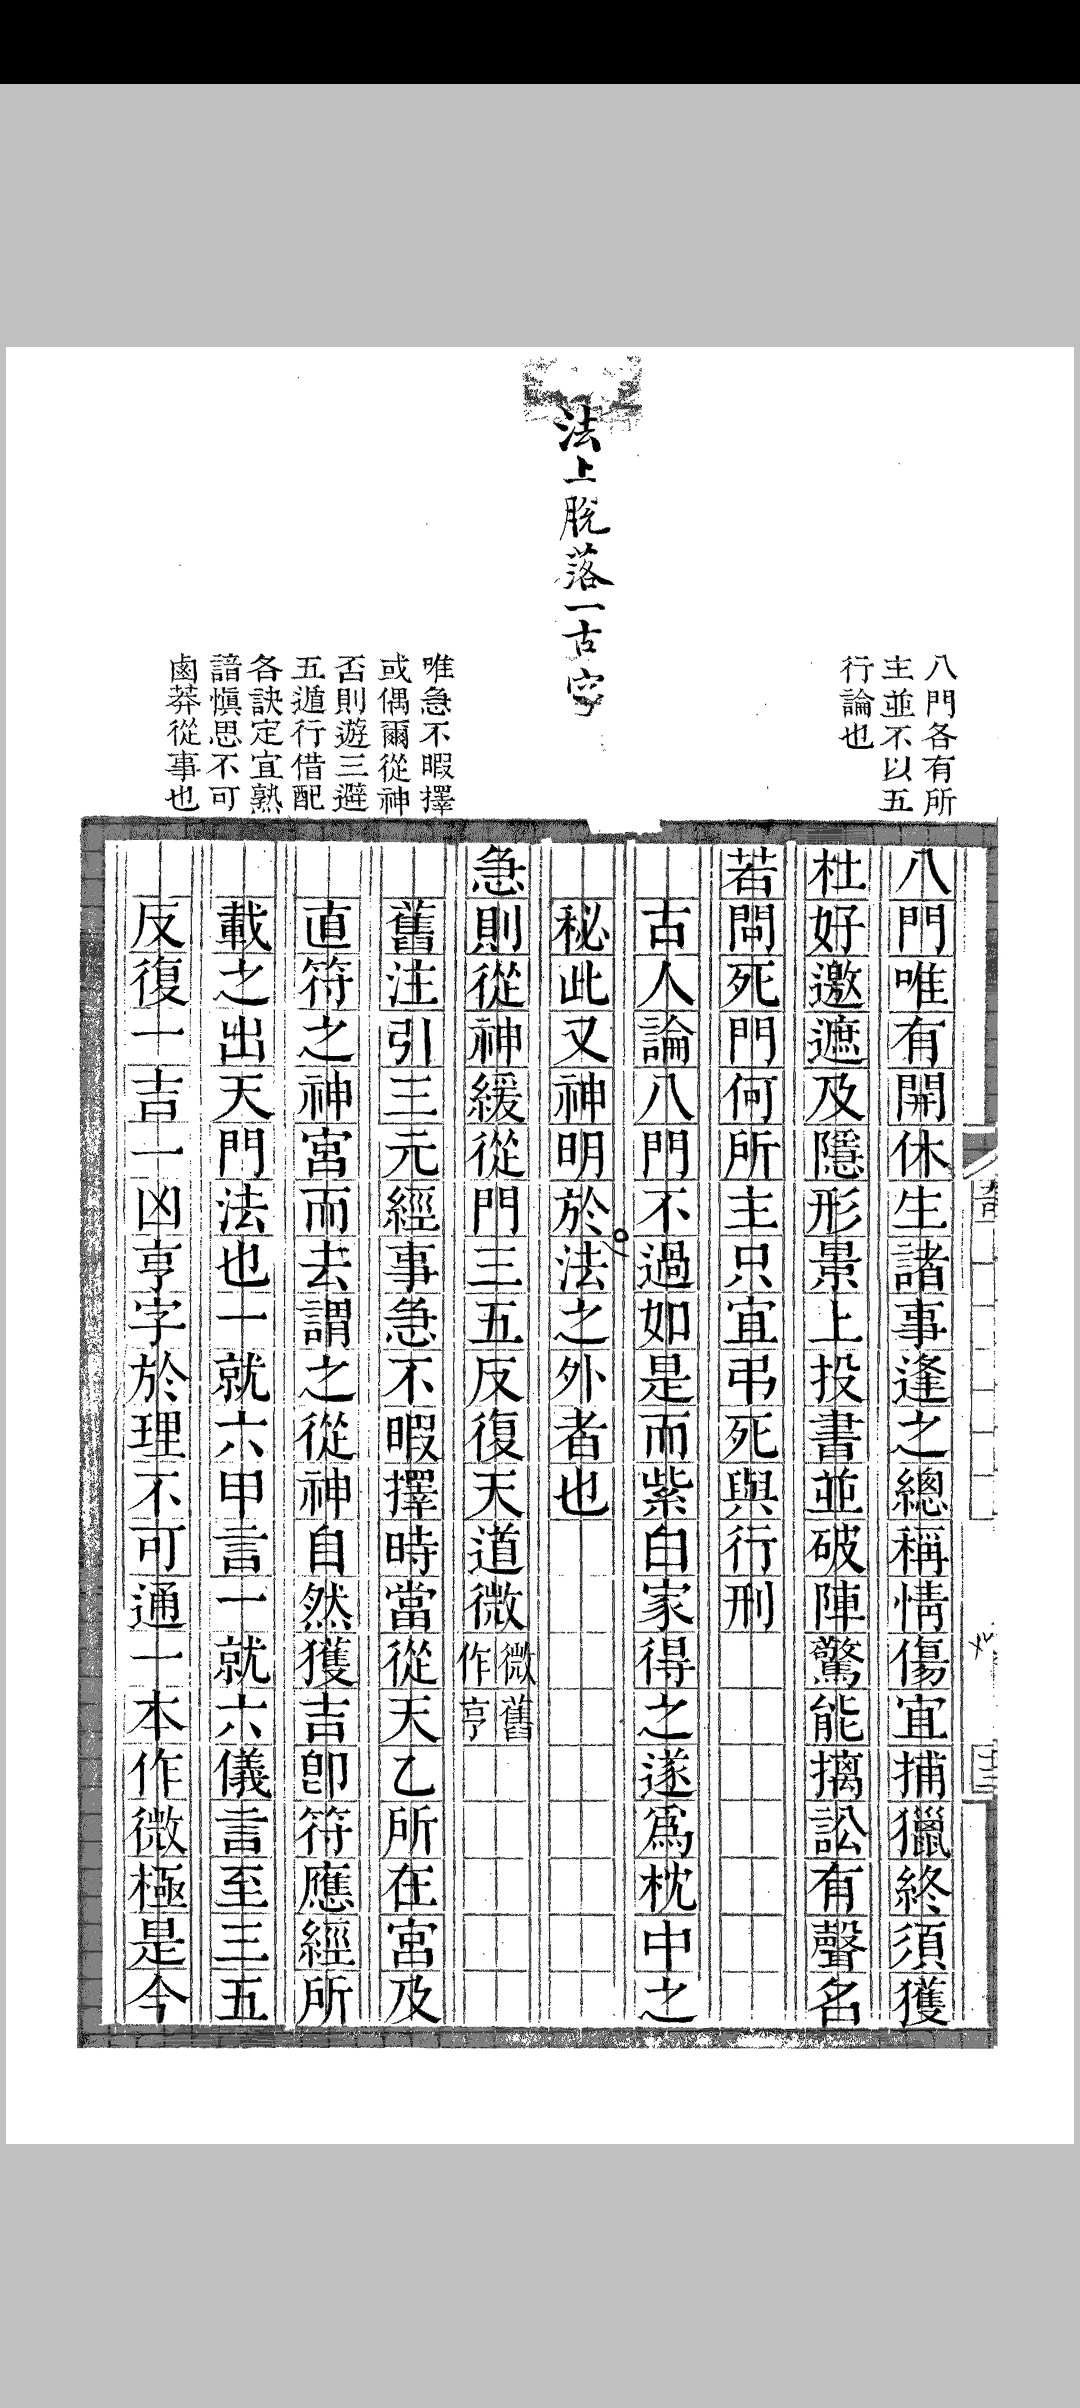 法上脫落一古字
八門各有所
主並不以五
行論也
唯急不暇擇
或偶爾從神
否則遊三避
五遁行借配
各訣定宜熟
諳慎思不可
鹵莽從事也
八門唯有開休生諸事逢之總稱情傷宜捕獵終須獲
杜好邀遮及隱形景上投書並破陣驚能擒訟有聲名
若問死門何所主只宜弔死與行刑
古人論八門不過如是而紫白家得之遂為枕中之
秘此又神明於法之外者也
急則從神緩從門三五反復天道微
微舊
作亨
舊注引三元經事急不暇擇時當從天乙所在宮及
直符之神宮而去謂之從神自然獲吉卽符應經所
載之出天門法也一就六甲言一就六儀言至三五
反復一吉一凶亨字於理不可通一本作微極是今